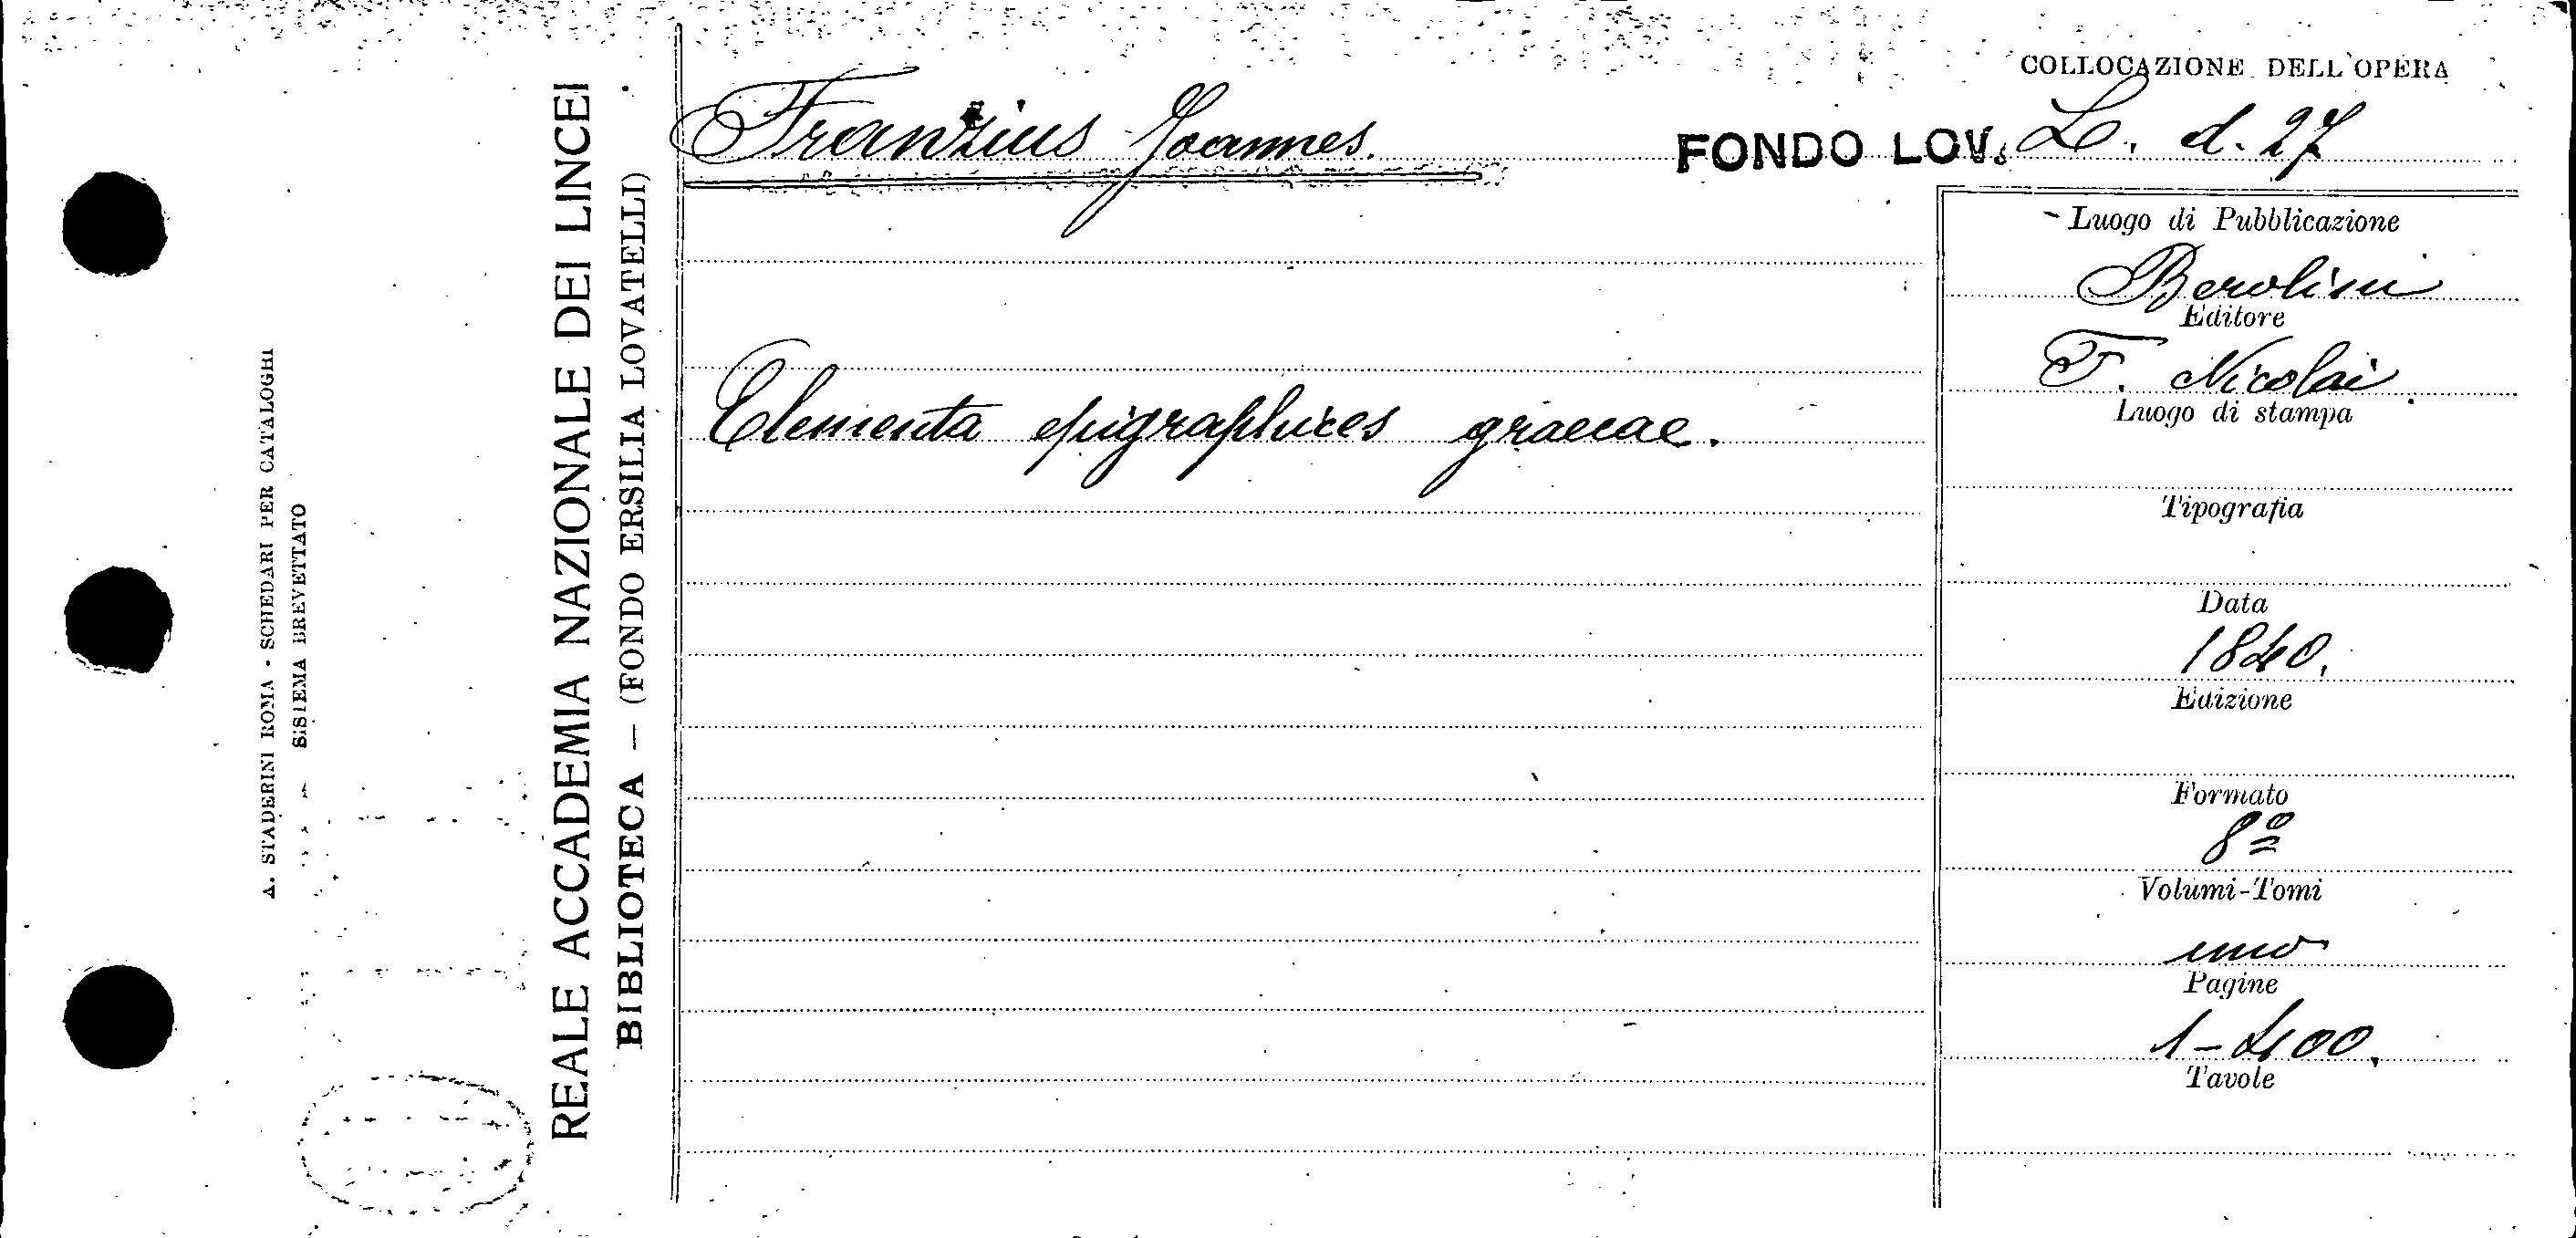 COLLOCAZIONE DELL'OPERA
Franzius Joannes.
FONDO LOV. L. d. 27
Luogo di Pubblicazione
Berolini
Editore
F. Nicolai
Luogo di stampa
Elementa epigraphices graecae.
Tipografia
Data
1840.
Edizione
Formato
8º
Volumi-Tomi
uno
Pagine
1-400.
Tavole
REALE ACCADEMIA NAZIONALE DEI LINCEI
BIBLIOTECA — (FONDO ERSILIA LOVATELLI)
A. STADERINI ROMA - SCHEDARI PER CATALOGHI
SISTEMA BREVETTATO